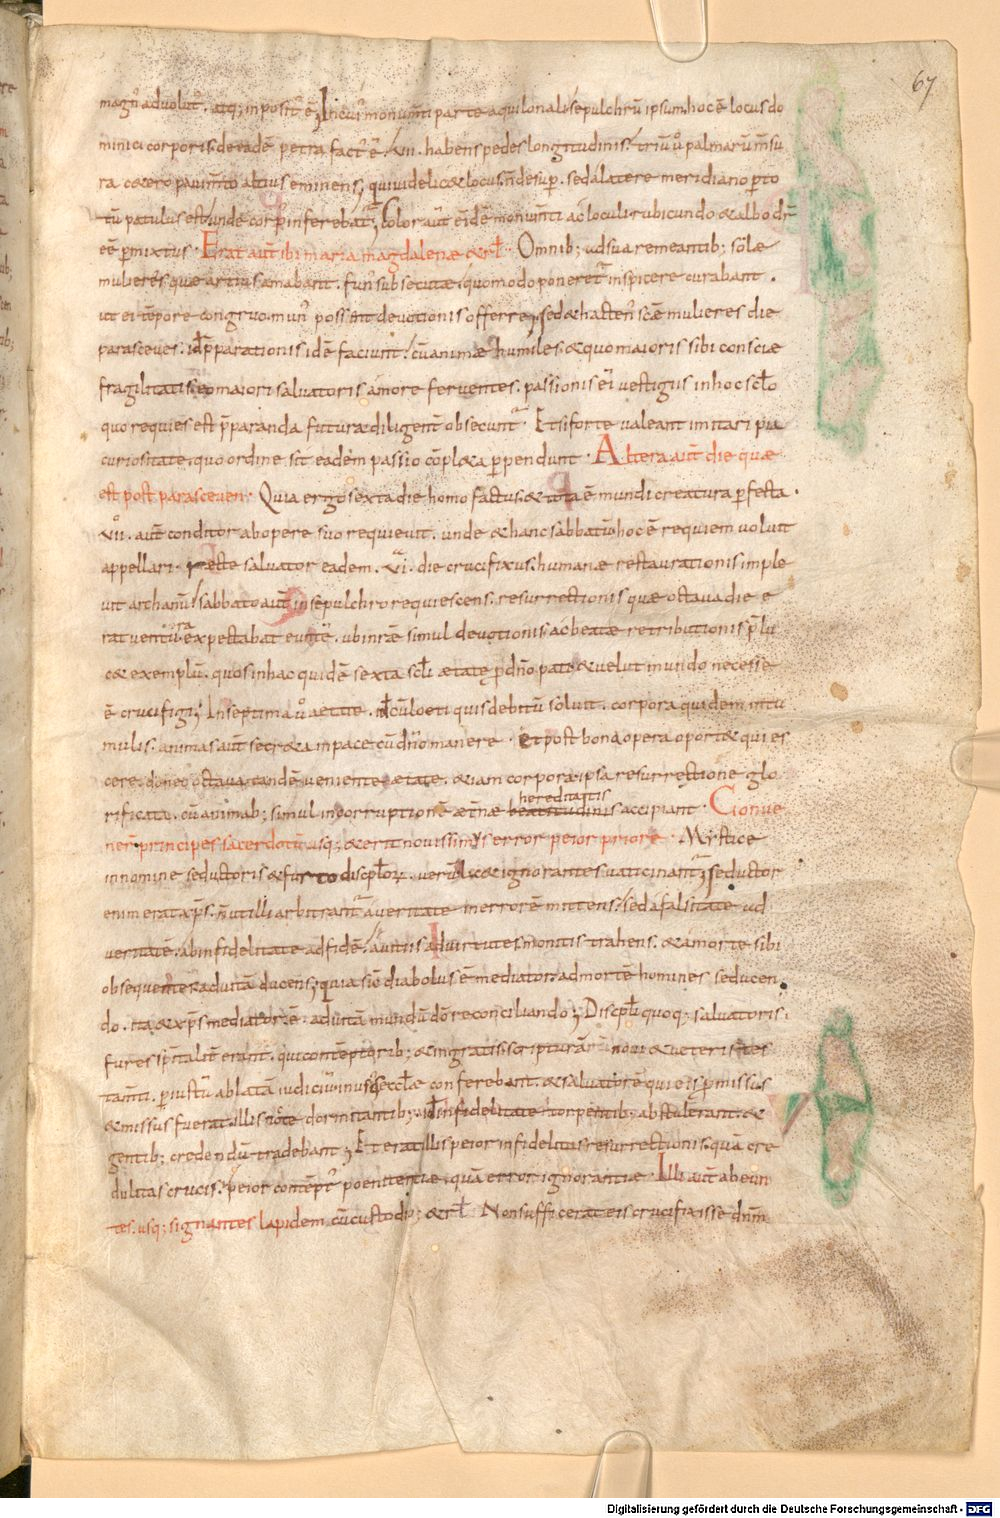 67
magn' advolut'. atq; inposit' ē; In cui' monum̄ti parte aquilonali sepulchrū ipsum. hoc ē locus do
minici corporis. de eadē petra fact' ē. VII. habens pedes longitudinis. triū ů palmarū m̄su
ra cetero pavim̄to altius eminens; qui videlicet locus. n̄ desup. sed a latere meridiano p to
tū patulus est. unde corp' inferebatur; Color aut̄ eidē monum̄ti ac loculi rubicundo & albo dr̄
eē p mixtus. Erat aut̄ ibi maria magdalenæ & rł. Omnib; ad sua remeantib; solæ
mulieres quæ artius amabant. fun' subsecutæ. quomodo poneretur inspicere curabant.
ut ei tēpore congruo. mun' possint devotionis offerre; sed & hacten' scæ mulieres die
parasceves. id p̄parationis idē faciunt. cū animæ humiles. & quo maioris sibi consciæ
fragilitatis. eo maiori salvatoris amore ferventes. passionis ei' vestigiis in hoc scło
quo requies est p̄paranda futura diligent̄ obsecuntur. Et si forte valeant imitari pia
curiositate. quo ordine sit eadem passio cōpleta perpendunt. Altera aut̄ die quæ
est post parasceven. Quia ergo sexta die homo factus. & tota ē mundi creatura pfecta.
VII. aut̄ conditor ab opere suo requievit. unde & hanc sabbatū. hoc ē requiem voluit
appellari. recte salvator eadem. VI. die crucifixus. humanæ restaurationis imple
vit archanū. sabbato aut̄ in sepulchro requiescens. resurrectionis quæ octava die e
rat ventura expectabat
& exemplū. quos in hac quidē sexta scłi ætate p dn̄o pati. & velut mundo necesse
ē crucifigi; In septima ů aetate. corpora quidem in tu
mulis. animas aut̄ secreta in pace cū dn̄o manere. Et post bona opera oportet quies
cere. donec octava tandē veniente ætate. etiam corpora ipsa resurrectione glo
rificata. cū animab; simul incorruptionē æternæ beatitudinis hereditatis accipiant. Conve
ner̄ principes sacerdotū usq; & erit novissimus error peior priore. Mystice
in nomine seductoris & furto
enim erat xps. n̄ ut illi arbitrantur a veritate in errorē mittens. sed a falsitate ad
veritatē. ab infidelitate ad fidē. a vitiis ad virtutes monitis trahens. & a morte sibi
obsequenter ad vitā ducens; quia sic diabolus ē mediator. ad mortē homines seducen
do. ita & xps mediator ē. ad vitā mundū dō reconciliando; Discipłi quoq. salvatoris.
fures spiritalit̄ erant. qui contēptorib; & ingratis. scripturā novi & veteris tes
tam̄ti. p iustū ablatā iudiciū in usus ecclæ conferebant. & salvatorē qui eis p missus
& missus fuerat. illis nocte dormitantib; id infidelitate torpentib; abstulerant. &
gentib; credendū tradebant; Et erat illis peior infidelitas resurrectionis. quā cre
dulitas crucis. peior contēpt' poenitentiæ. quā error ignorantiæ. Illi aut̄ abeun
tes. usq; signantes lapidem cū custodib; & rł. Non sufficerat eis crucifixisse dn̄m
Digitalisierung gefördert durch die Deutsche Forschungsgemeinschaft - DFG